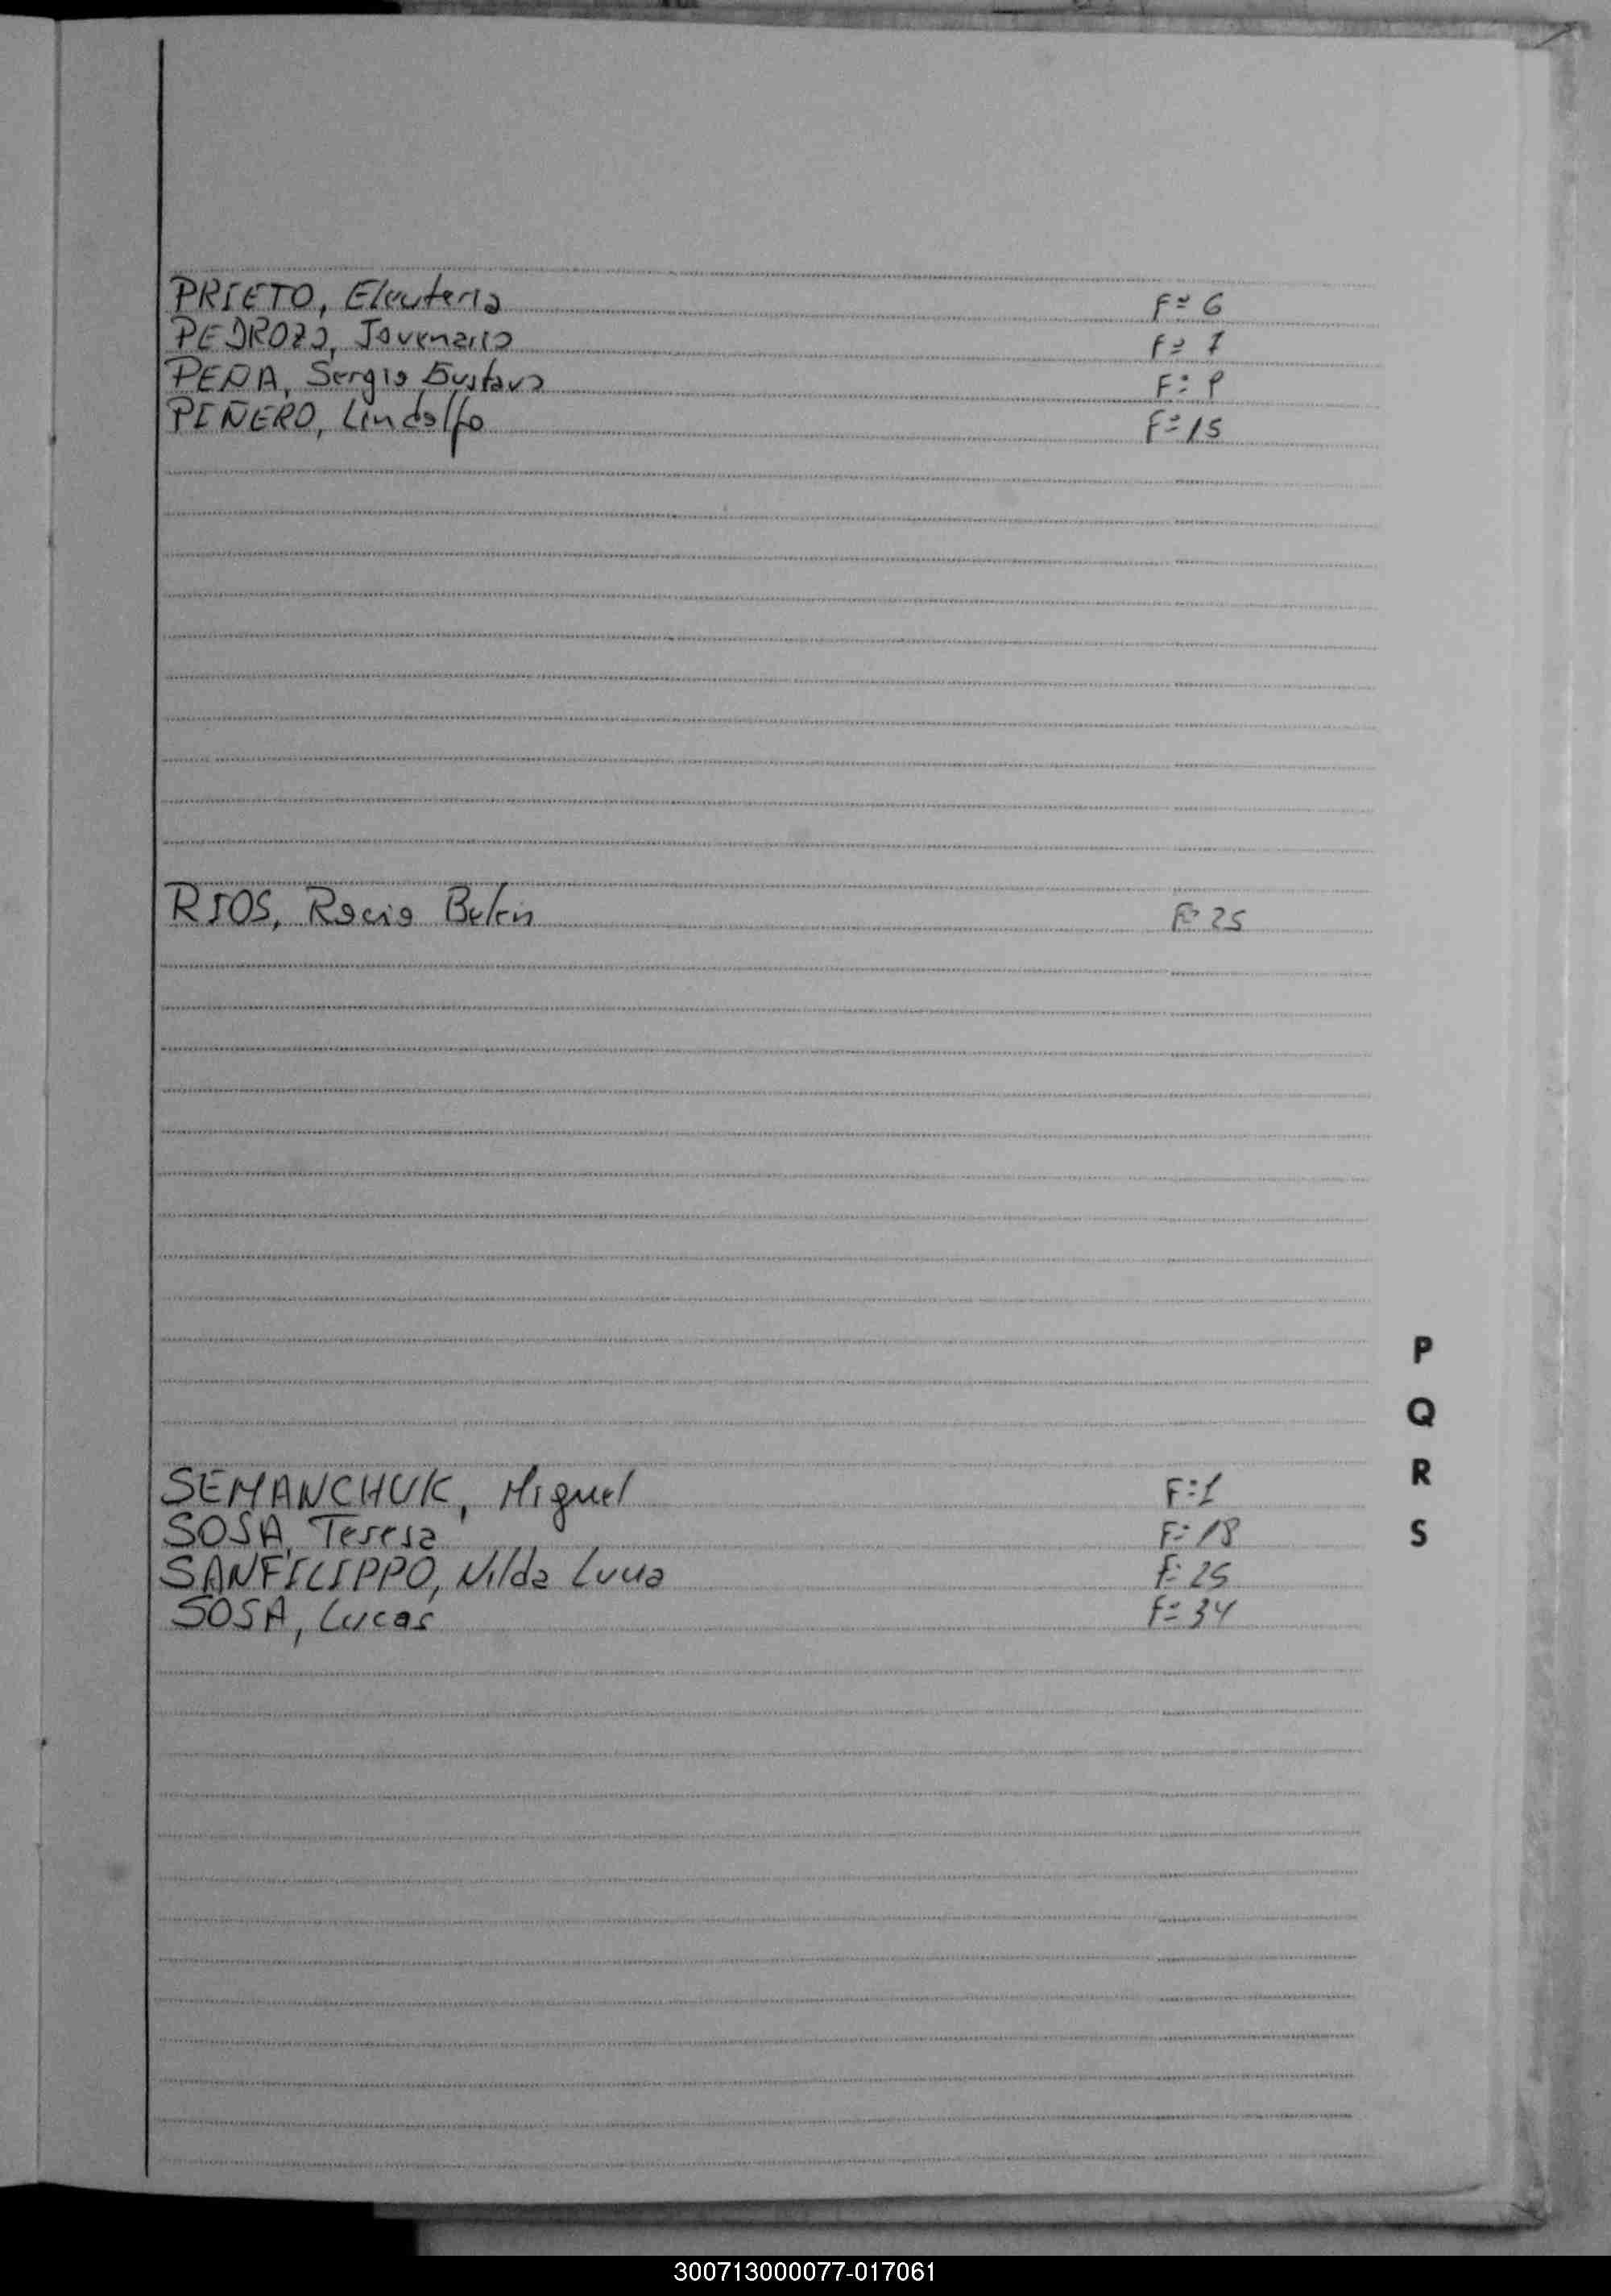 PRIETO, Eleuteria F: 6
PEDROZO, Jovenario F: 7
PEÑA, Sergio Gustavo F: 9
PIÑERO, Lindolfo F: 15
RIOS, Rocio Belen F: 25
SEMANCHUK, Miguel F: 1
SOSA, Teresa F: 18
SANFILIPPO, Nilda Lucia F: 25
SOSA, Lucas F: 34
P
Q
R
S
300713000077-017061